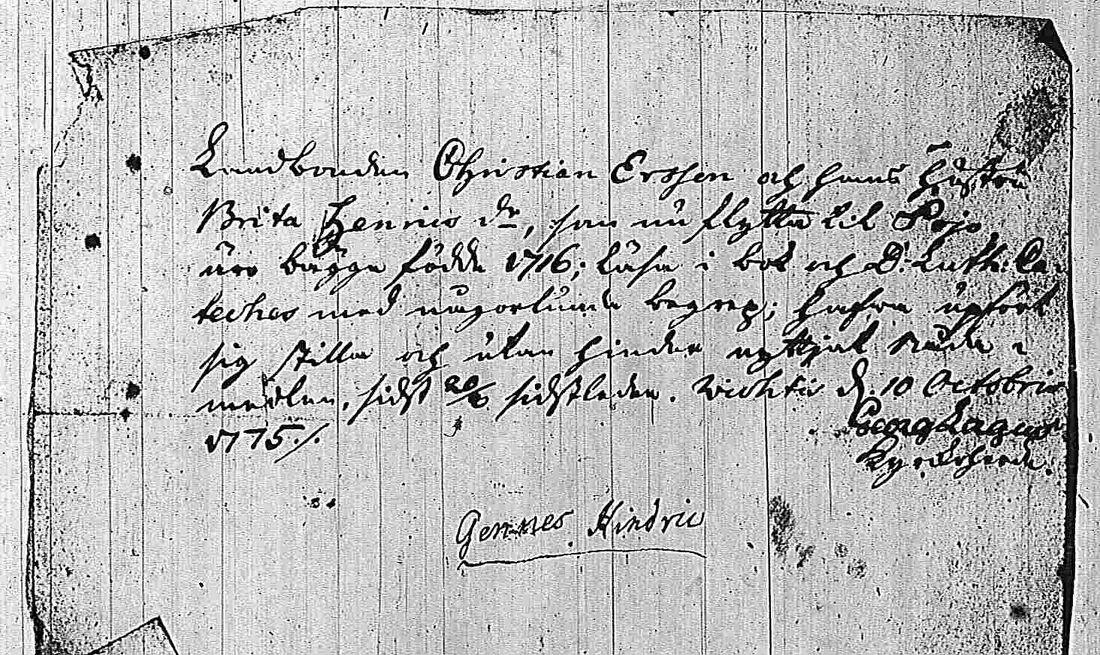 Landbonden Christian Ersson och hans Hustru
Brita Henrics dr, som nu flytta til Pojo,
äro bägge födde 1716; läsa i bok och D: Luth: Ca-
teches med någorlunda begrep; hafva upfört
sig stilla och utan hinder nyttjat nåde-
medlen, sidst sidstleden. Wichtis d. 10 Octobris
1775./.
Georg Lagus
Kyrckoherde.
Gennes Hindric